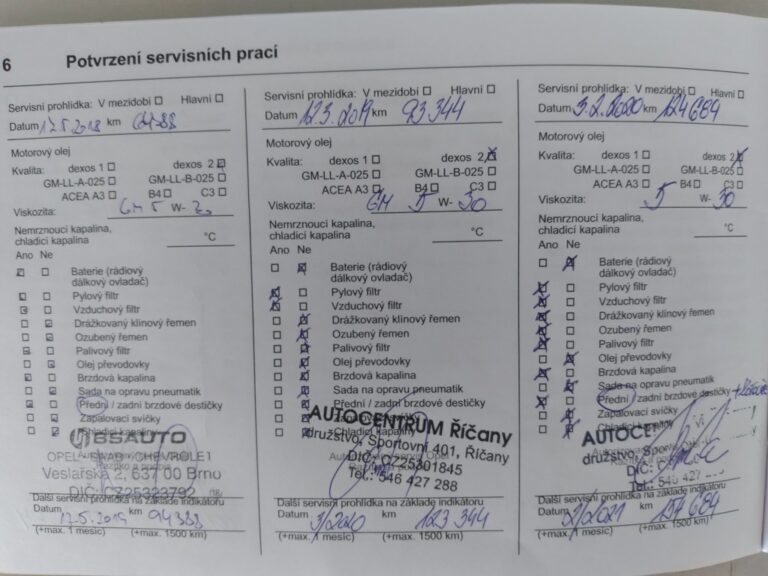 6 Potvrzení servisních prací
Servisní prohlídka: V mezidobí Hlavní
Datum 12.5.2018 km
Motorový olej
Kvalita: dexos 1 dexos 2
GM-LL-A-025 GM-LL-B-025
ACEA A3 B4 C3
Viskozita: GM 5 W-
Nemrznoucí kapalina,
chladicí kapalina °C
Ano Ne
Baterie (rádiový
dálkový ovladač)
Pylový filtr
Vzduchový filtr
Drážkovaný klínový řemen
Ozubený řemen
Palivový filtr
Olej převodovky
Brzdová kapalina
Sada na opravu pneumatik
Přední / zadní brzdové destičky
Zapalovací svíčky
Chladicí kapaliny
BSAUTO
OPEL SAAB CHEVROLET
Veslařská 2, 637 00 Brno
DIČ: CZ25323792
Další servisní prohlídka na základě indikátoru
Datum 12.5.2019 km 94388
(+max. 1 měsíc) (+max. 1500 km)
Servisní prohlídka: V mezidobí Hlavní
Datum 12.3.2019 km 93 344
Motorový olej
Kvalita: dexos 1 dexos 2
GM-LL-A-025 GM-LL-B-025
ACEA A3 B4 C3
Viskozita: GM 5 W- 30
Nemrznoucí kapalina,
chladicí kapalina °C
Ano Ne
Baterie (rádiový
dálkový ovladač)
Pylový filtr
Vzduchový filtr
Drážkovaný klínový řemen
Ozubený řemen
Palivový filtr
Olej převodovky
Brzdová kapalina
Sada na opravu pneumatik
Přední / zadní brzdové destičky
AUTOCENTRUM Říčany
družstvo, Sportovní 401, Říčany
DIČ: CZ25301845
Tel.: 546 427 288
Další servisní prohlídka na základě indikátoru
Datum 3/2020 km 123 344
(+max. 1 měsíc) (+max. 1500 km)
Servisní prohlídka: V mezidobí Hlavní
Datum 3.2.2020 km 124 684
Motorový olej
Kvalita: dexos 1 dexos 2
GM-LL-A-025 GM-LL-B-025
ACEA A3 B4 C3
Viskozita: 5 W- 30
Nemrznoucí kapalina,
chladicí kapalina °C
Ano Ne
Baterie (rádiový
dálkový ovladač)
Pylový filtr
Vzduchový filtr
Drážkovaný klínový řemen
Ozubený řemen
Palivový filtr
Olej převodovky
Brzdová kapalina
Sada na opravu pneumatik
Přední / zadní brzdové destičky
Zapalovací svíčky
Chladicí kapaliny
družstvo, Sportovní
DIČ:
Tel.: 546 427
Další servisní prohlídka na základě indikátoru
Datum 2/2021 km 154 684
(+max. 1 měsíc) (+max. 1500 km)